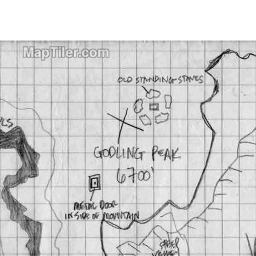 MapTiler.com
OLD STANDING STONES
GODLING PEAK
6700'
METAL DOOR
INSIDE OF MOUNTAIN